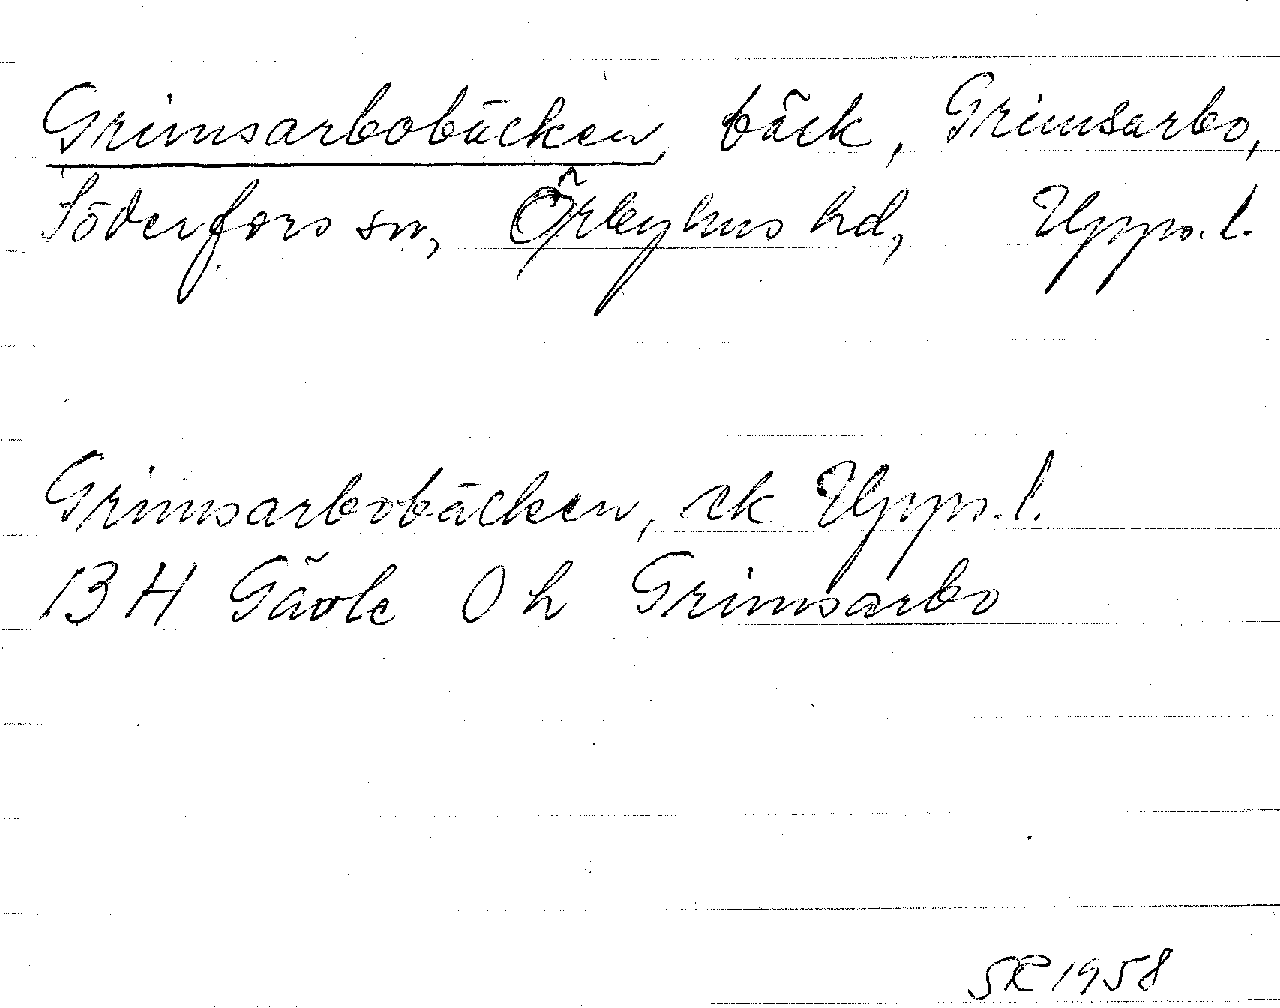 Grimsarbobäcken, bäck, Grimsarbo,
Söderfors sn, Örbyhus hd, Uppl.
Grimsarbobäcken, ek Uppl.
13 H Gävle 0 h Grimsarbo
SR 1958